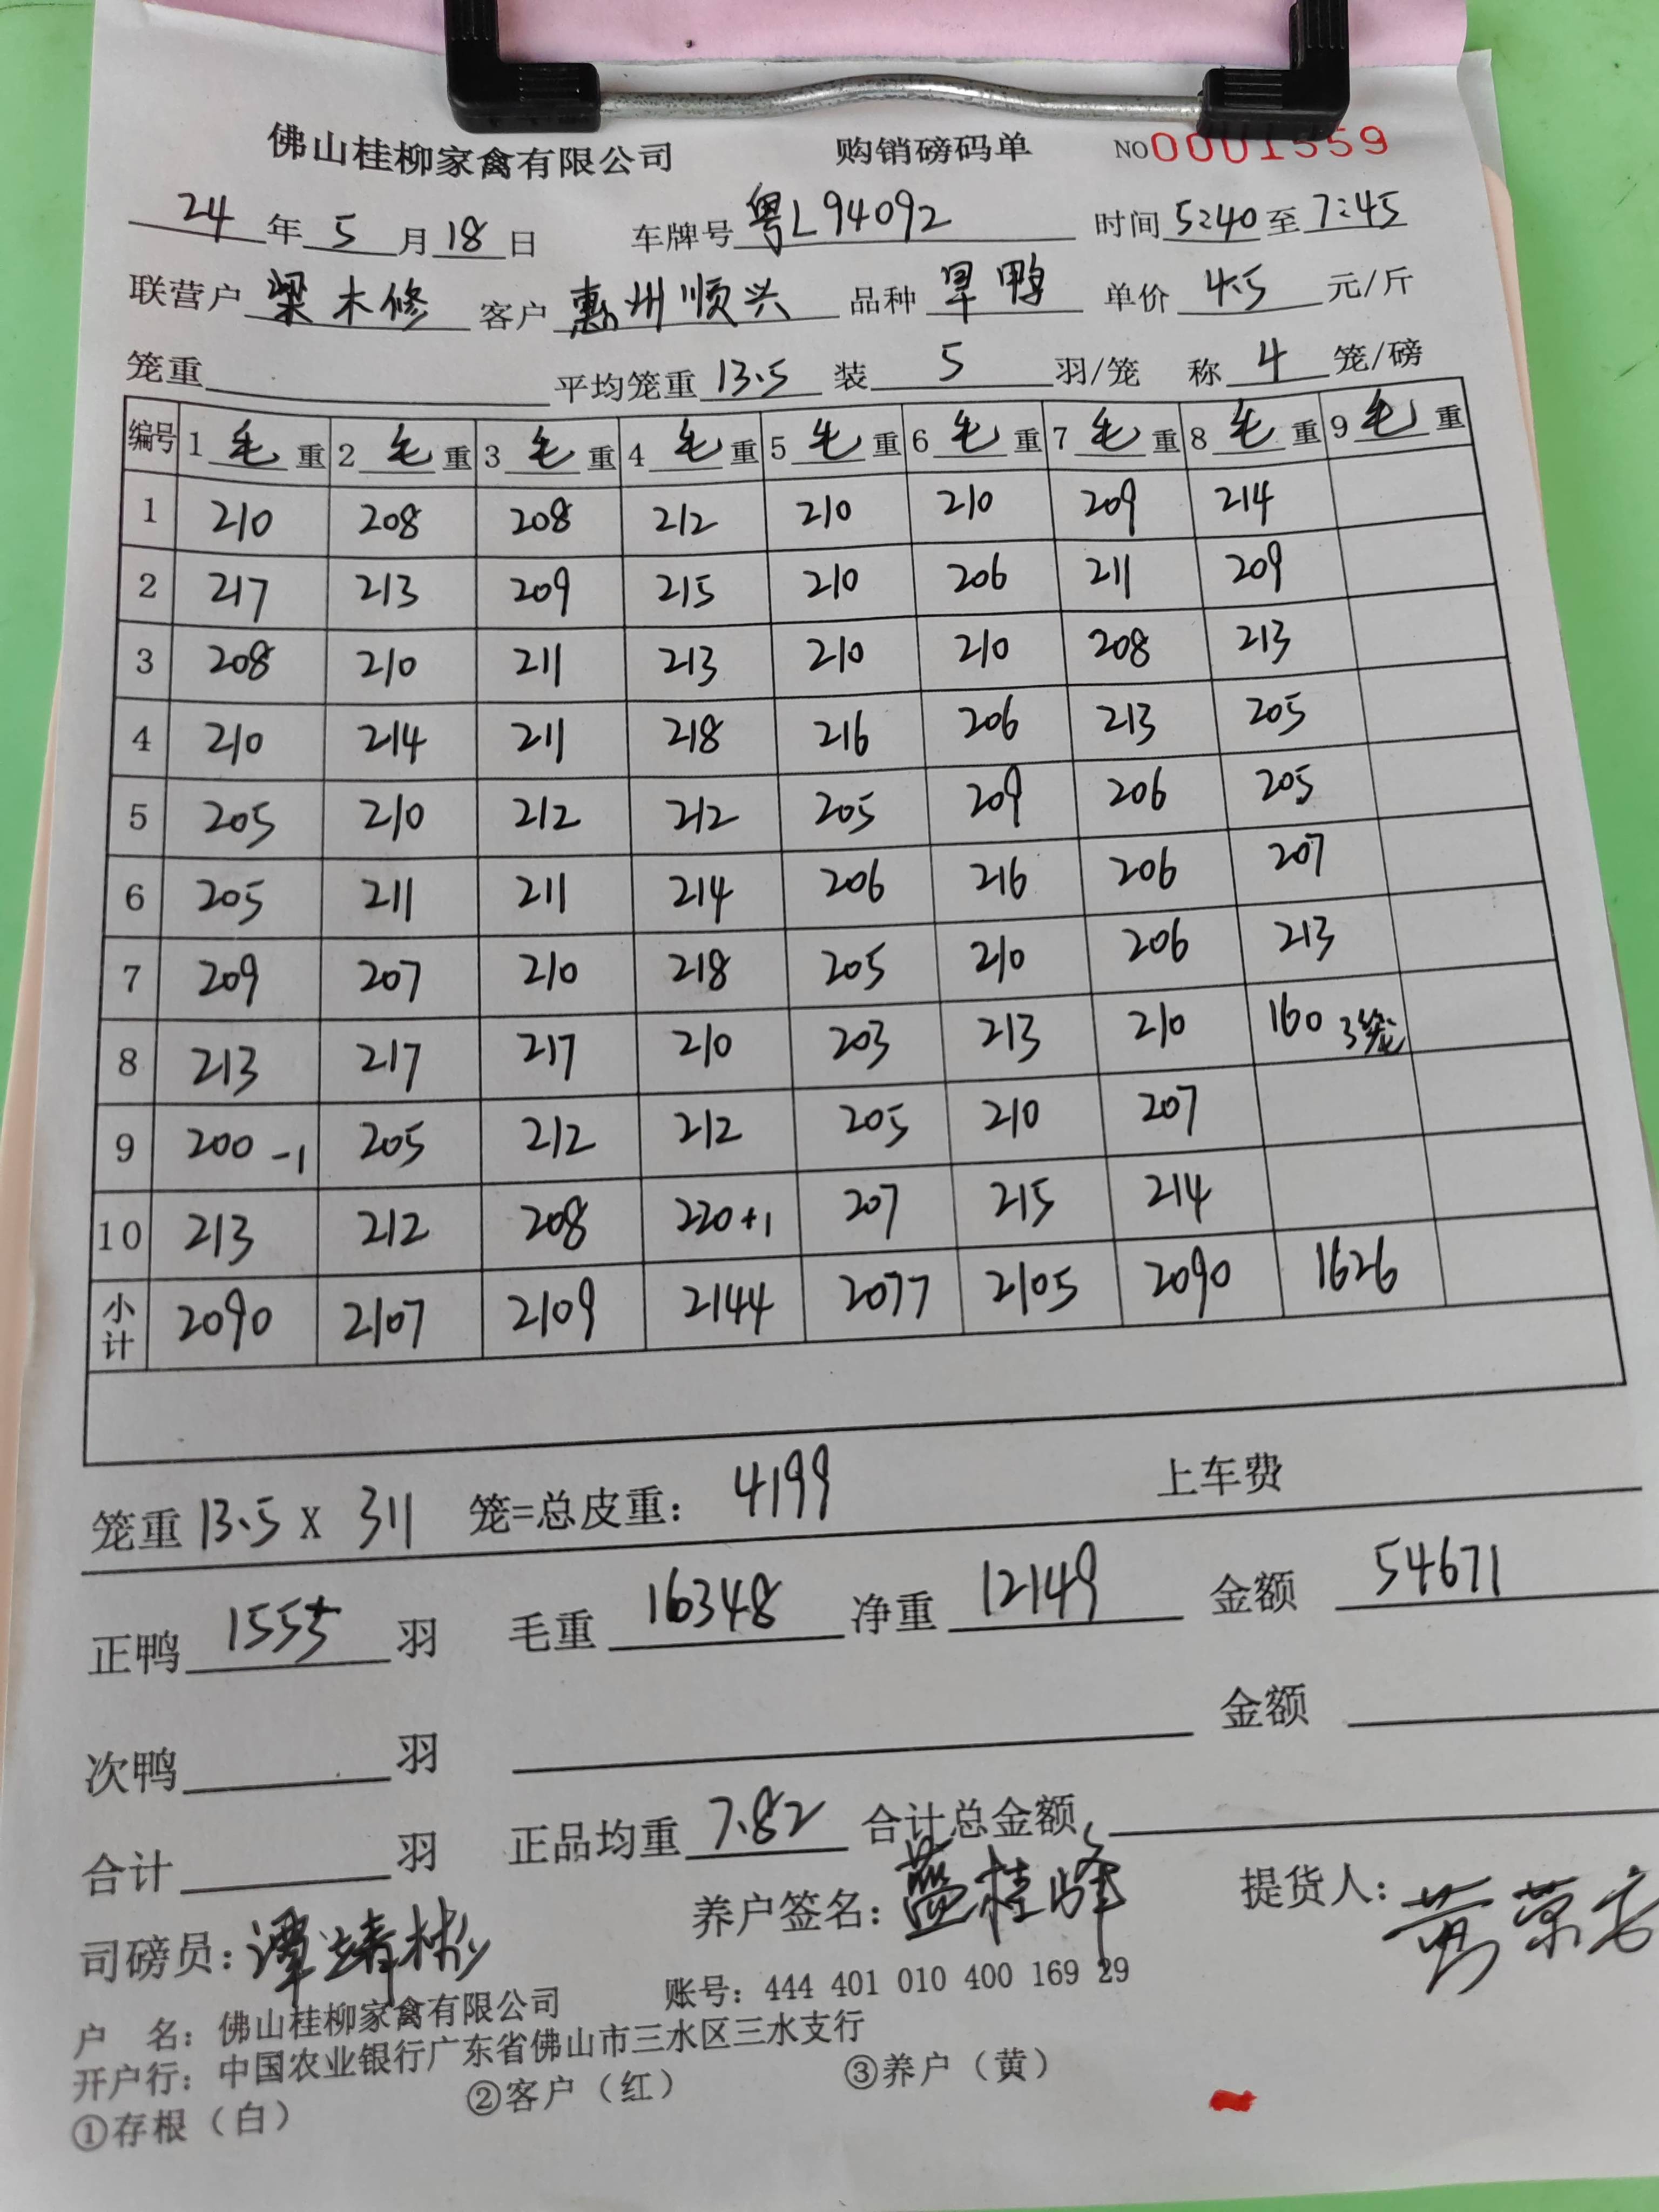 佛山桂柳家禽有限公司 购销磅码单 NO0001559
24年5月18日 车牌号粤L94092 时间5:40至7:45
联营户梁木修 客户惠州顺兴 品种旱鸭 单价4.5元/斤
笼重 平均笼重13.5 装5羽/笼 称4笼/磅
编号 1毛重 2毛重 3毛重 4毛重 5毛重 6毛重 7毛重 8毛重 9毛重
1 210 208 208 212 210 210 209 214
2 217 213 209 215 210 206 211 209
3 208 210 211 213 210 210 208 213
4 210 214 211 218 216 206 213 205
5 205 210 212 212 205 209 206 205
6 205 211 211 214 206 216 206 207
7 209 207 210 218 205 210 206 213
8 213 217 217 210 203 213 210 160 3笼
9 200-1 205 212 212 205 210 207
10 213 212 208 220+1 207 215 214
小计 2090 2107 2109 2144 2077 2105 2090 1626
笼重13.5X 311 笼=总皮重：4199 上车费
正鸭1555羽 毛重16348 净重12149 金额54671
次鸭 羽 金额
合计 羽 正品均重7.82 合计总金额
司磅员：谭靖彬 养户签名：蓝桂峰 提货人：
户 名：佛山桂柳家禽有限公司 账号：444 401 010 400 169 29
开户行：中国农业银行广东省佛山市三水区三水支行
①存根（白） ②客户（红） ③养户（黄）